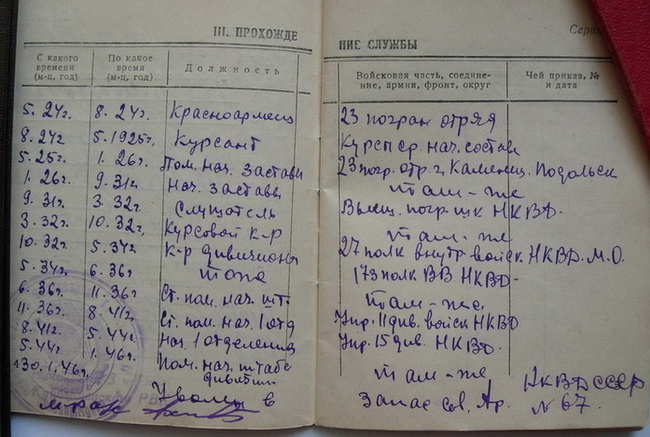 III. ПРОХОЖДЕ
НИЕ СЛУЖБЫ
Серия
С какого времени (м-ц, год)
По какое время (м-ц, год)
Должность
Войсковая часть, соедине-
ние, армия, фронт, округ
Чей приказ, №
и дата
5.24г. 8.24г. Красноармеец 23 погран отряд
8.24г 5.1925г. Курсант Курсы ср. нач. состава
5.25г. 1.26г. Пом. нач. заставы 23 погр. отр. г. Каменец. Подольск
1.26г. 9.31г Нач. заставы там-же
9.31г. 3.32г. Слушатель Высш. погр. шк НКВД.
3.32г. 10.32г. Курсовой к-р там-же
10.32г. 5.34г К-р дивизиона 27 полк внутр. войск. НКВД. М.О.
5.34г. 6.36г. тоже 173 полк ВВ НКВД-
6.36г. 11.36г Ст. пом. нач. шт. там-же.
11.36г. 8.41г. Ст. пом. нач. 1 отд Упр. 11 див. войск НКВД
8.41г. 5.44г. Нач 1 отделения Упр. 15 див. НКВД.
5.44г. 1.46г. Пом. нач. штаба дивизии там-же
30.1.46г. Уволен в запас Св. Ар. НКВД СССР
№ 67.